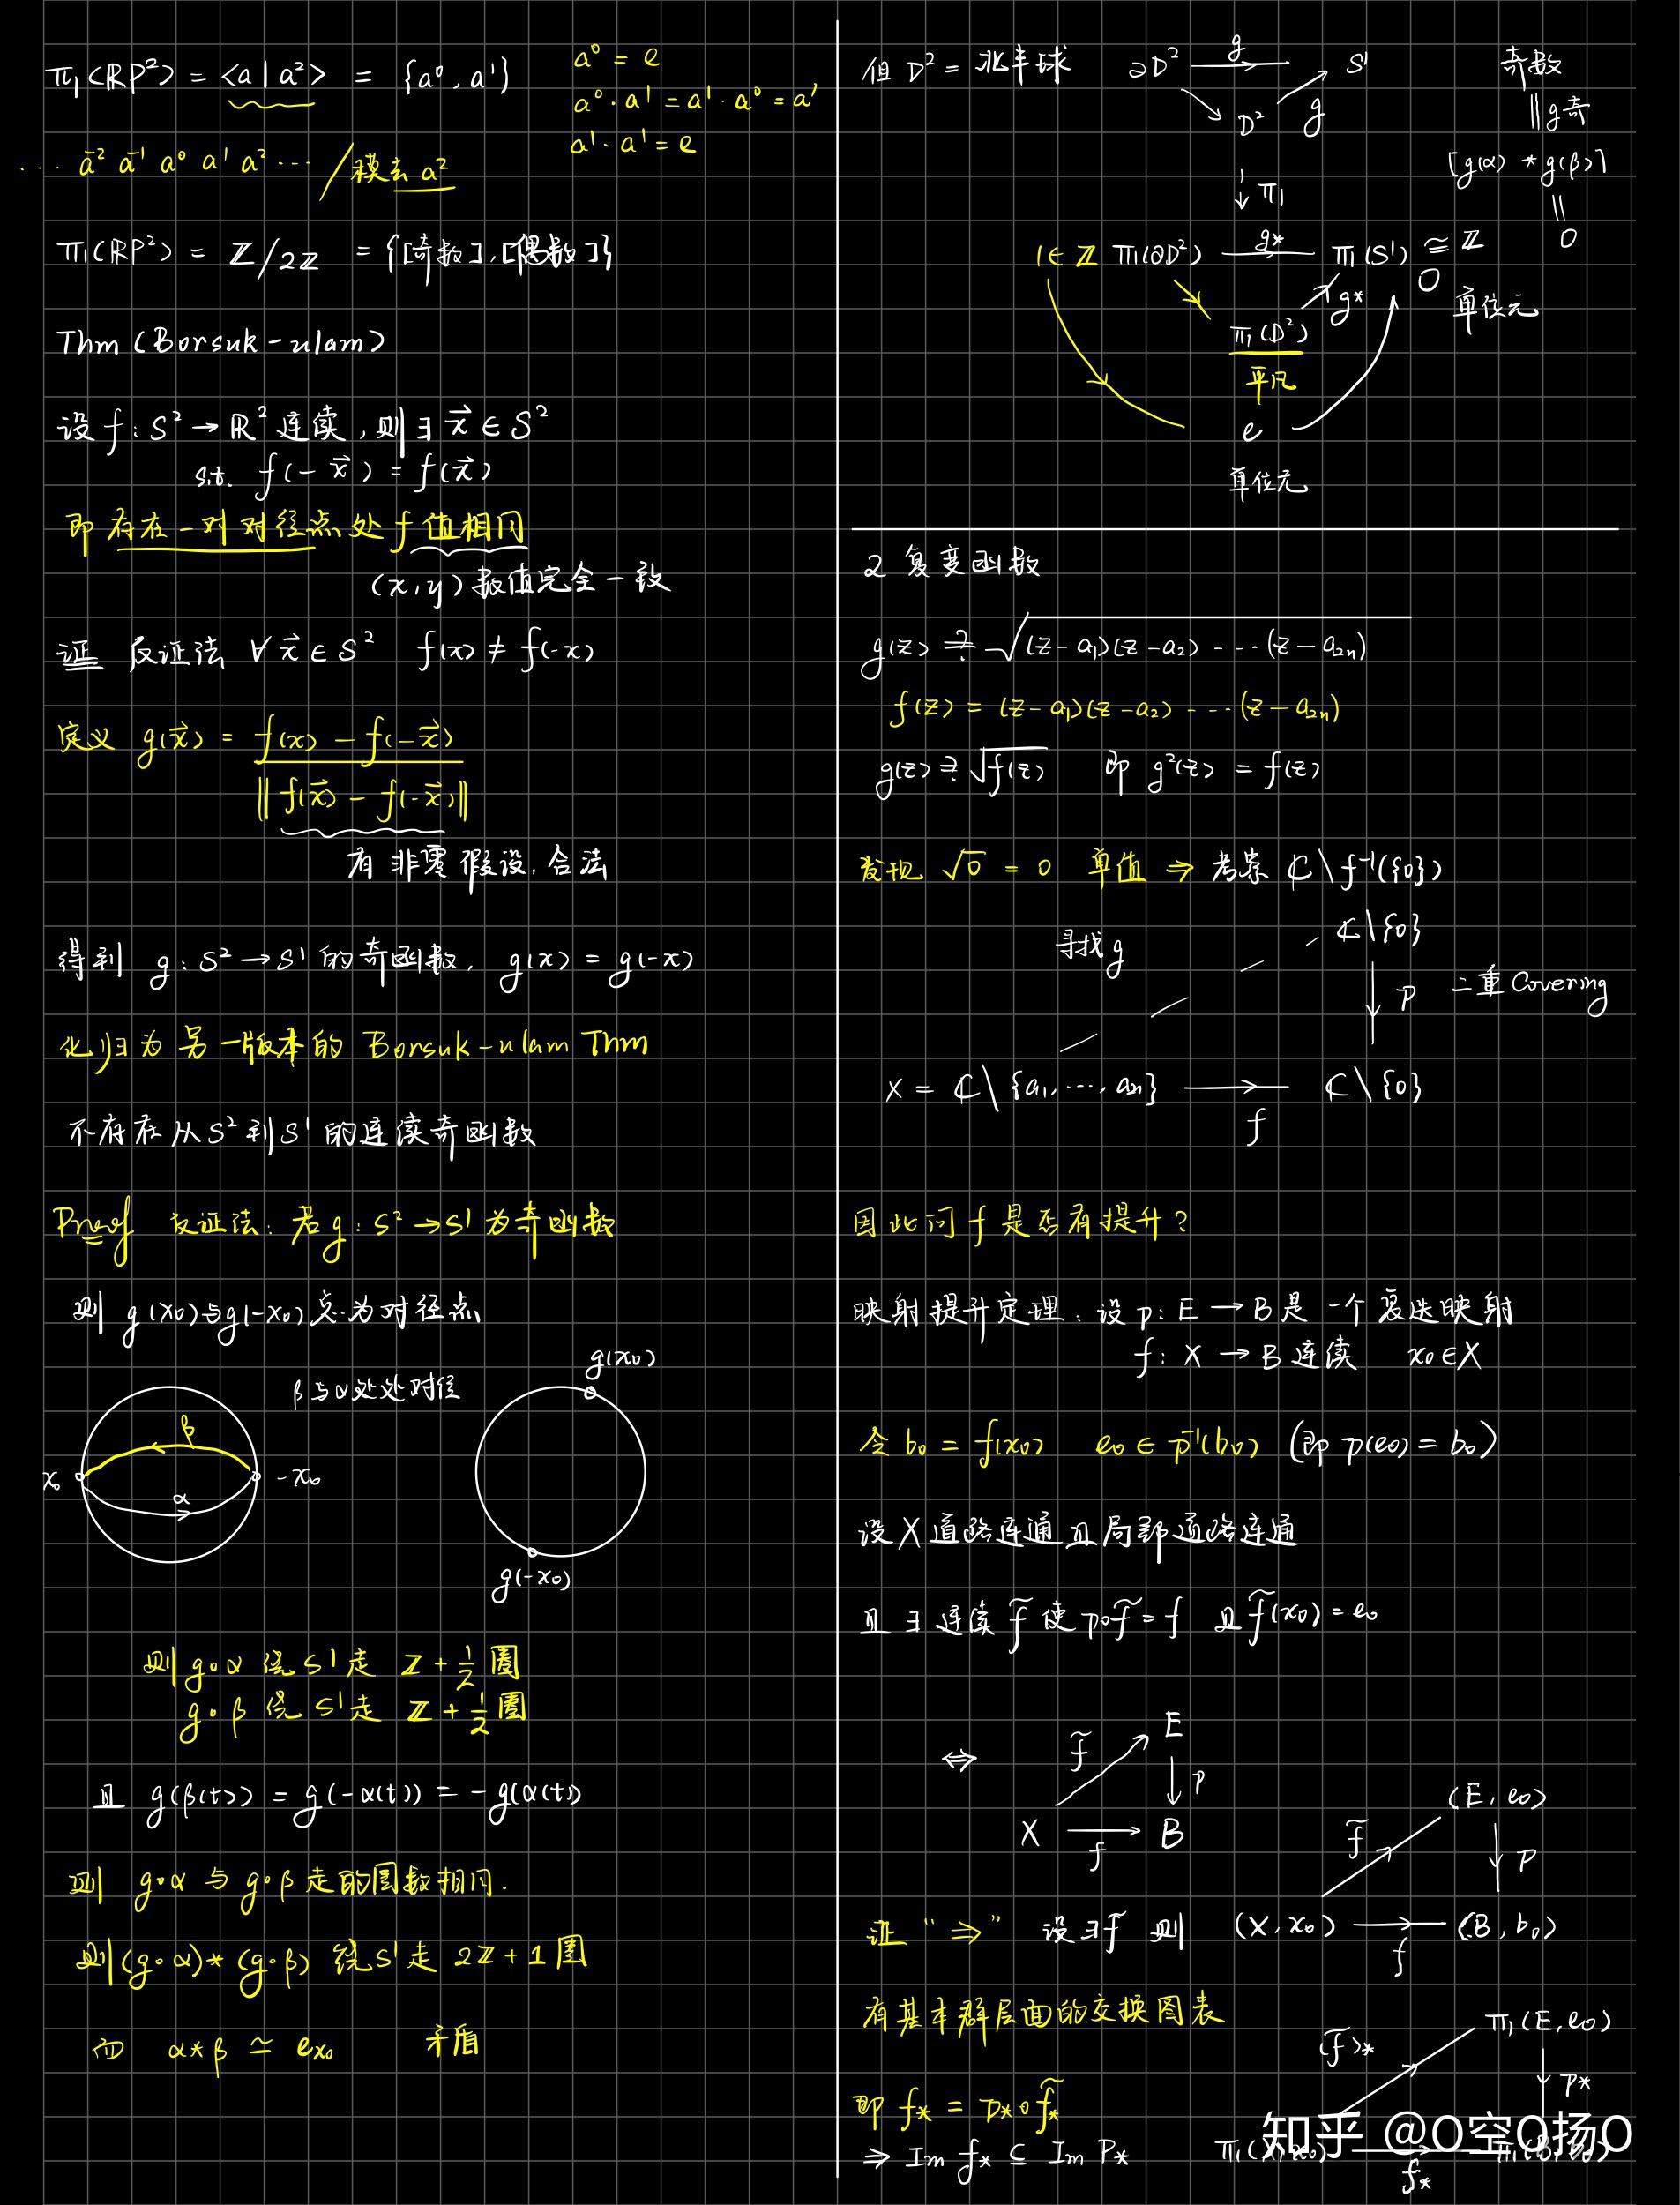 π₁(RP²) = <a | a²> = {a⁰, a¹}
a⁰ = e
a⁰·a¹ = a¹·a⁰ = a¹
a¹·a¹ = e
··· a⁻² a⁻¹ a⁰ a¹ a² ··· / 模去 a²
π₁(RP²) = ℤ/2ℤ = {[奇数], [偶数]}
Thm (Borsuk-ulam)
设 f: S² → ℝ² 连续, 则 ∃ x⃗ ∈ S²
s.t. f(-x⃗) = f(x⃗)
即存在一对对径点处 f 值相同
(x, y) 数值完全一致
证 反证法 ∀ x⃗ ∈ S² f(x) ≠ f(-x)
定义 g(x⃗) = f(x) - f(-x⃗)
‖f(x⃗) - f(-x⃗)‖
有非零假设, 合法
得到 g: S² → S¹ 的奇函数, g(x) = g(-x)
化归为另一版本的 Borsuk-ulam Thm
不存在从 S² 到 S¹ 的连续奇函数
Proof 反证法: 若 g: S² → S¹ 为奇函数
则 g(x₀) 与 g(-x₀) 为对径点
β 与 α 处处对径
g(x₀)
β
x₀
-x₀
α
g(-x₀)
则 g∘α 绕 S¹ 走 ℤ + 1/2 圈
g∘β 绕 S¹ 走 ℤ + 1/2 圈
且 g(β(t)) = g(-α(t)) = -g(α(t))
则 g∘α 与 g∘β 走的圈数相同.
则 (g∘α) * (g∘β) 绕 S¹ 走 2ℤ + 1 圈
而 α * β ≃ e_x₀ 矛盾
但 D² = 北半球
∂D² g S¹
D² g
奇数
‖ g奇
[g(α) * g(β)]
‖
0
↓ π₁
1 ∈ ℤ π₁(∂D²) g* π₁(S¹) ≅ ℤ
0
单位元
g*
π₁(D²)
平凡
e
单位元
2 复变函数
g(z) ≟ √(z-a₁)(z-a₂) ···· (z-a₂ₙ)
f(z) = (z-a₁)(z-a₂) ···· (z-a₂ₙ)
g(z) ≟ √f(z) 即 g²(z) = f(z)
发现 √0 = 0 单值 ⇒ 考察 ℂ \ f⁻¹({0})
寻找 g
ℂ\{0}
↓ p 二重 Covering
X = ℂ \ {a₁, ···, a₂ₙ} → ℂ \ {0}
f
因此问 f 是否有提升?
映射提升定理: 设 p: E → B 是一个复迭映射
f: X → B 连续 x₀ ∈ X
令 b₀ = f(x₀) e₀ ∈ p⁻¹(b₀) (即 p(e₀) = b₀)
设 X 道路连通且局部道路连通
且 ∃ 连续 f̃ 使 p∘f̃ = f 且 f̃(x₀) = e₀
⇔
f̃ E
↓ p
X → B
f
(E, e₀)
f̃
↓ p
证 "⇒" 设 ∃ f̃ 则 (X, x₀) → (B, b₀)
f
有基本群层面的交换图表
(f̃)* π₁(E, e₀)
↓ p*
即 f* = p* ∘ f̃*
⇒ Im f* ⊆ Im P*
π₁(X, x₀) → π₁(B, b₀)
f*
知乎 @O空O扬O